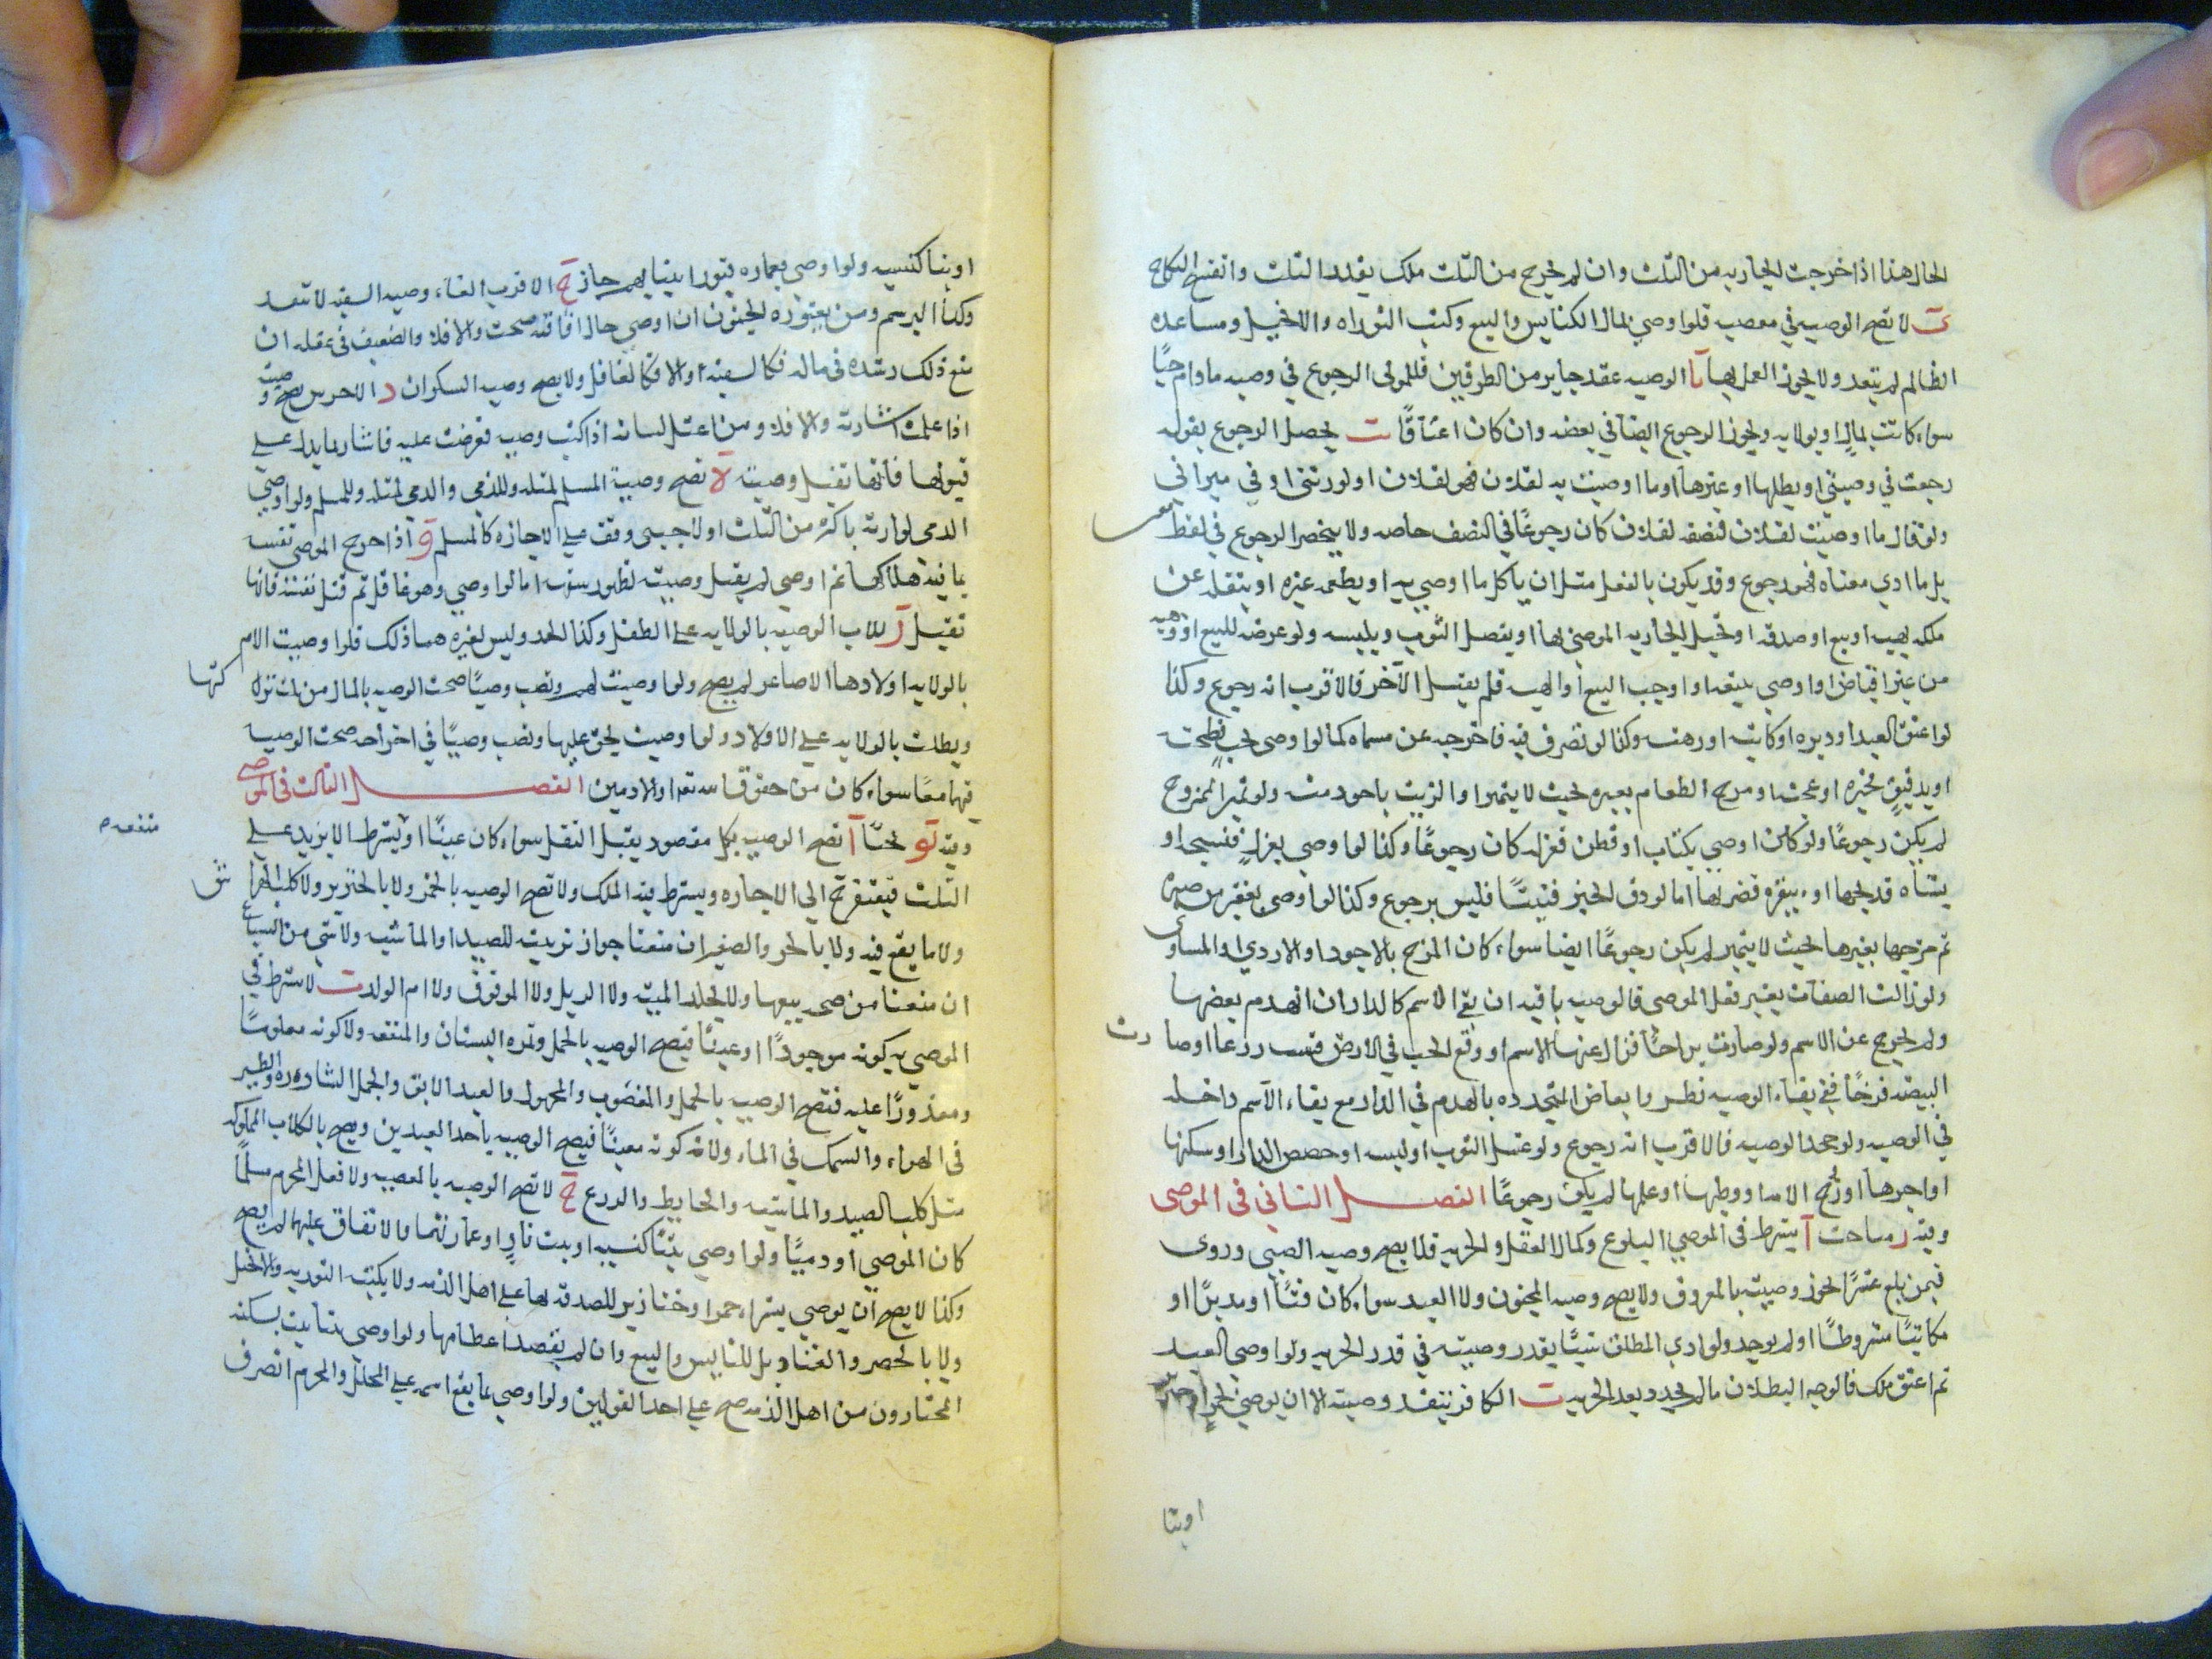 الحال هذا اذا خرجت الجاريه من الثلث وان لم تخرج من الثلث ملك بقدر الثلث وانفسخ النكاح
ى لا تصح الوصيه في معصيه فلو اوصي بمال الكنايس والبيع وكتب التوراه والانجيل ومساعده
الظالم لم ينعد ولا يجوز العمل بها يا الوصيه عقد جايز من الطرفين فللموصى الرجوع في وصيه مادام حيًا
سواء كانت بمال او بولايه ويجوز الرجوع ايضا في بعضه وان كان اعتاقًا يب يحصل الرجوع بقوله
رجعت في وصيتي او بطلها او غيرها او ما اوصيت به لفلان فهو لفلان او لورثتي او في ميراثي
ولو قال ما اوصيت لفلان فنصفه لفلان كان رجوعًا في النصف خاصه ولا ينحصر الرجوع في لفظ
بل ما ادي معناه فهو رجوع وقد يكون بالفعل مثل ان ياكل ما اوصي به او يطعمه غيره او ينقله عن
ملكه بهبه او بيع او صدقه او تحبل الجاريه الموصى بها او يفصل الثوب ويلبسه ولو عرضه للبيع او وهبه
من غير اقباض او اوصي ببيعه او اوجب البيع او الهبه فلم يقبل الآخر فالاقرب انه رجوع وكذا
لو اعتق العبد او دبره او كاتبه او رهنه وكذا لو تصرف فيه فاخرجه عن مسماه كما لو اوصى بحب فطحنه
او بدقيق فخبزه او عجنه او مزج الطعام بغيره بحيث لا يتميز او الزيت باجود منه ولو تميز الممزوج
لم يكن رجوعًا ولو كان اوصي بكتاب او قطن فغزله كان رجوعًا وكذا لو اوصي بغزل فنسجه او
بشاه فذبحها او بنقره فضربها اما لو دق الخبز فتيتًا فليس برجوع وكذا لو اوصى بقفيز من صبره
ثم مزجها بغيرها بحيث لا يتميز لم يكن رجوعًا ايضا سواء كان المزج بالاجود او الاردي او المساوى
ولو زالت الصفات بغير فعل الموصى فالوصيه باقيه ان بقي الاسم كالدار ان انهدم بعضها
ولم يخرج عن الاسم ولو صارت براحًا فزال عنها الاسم او وقع الحب في الارض فنبت زرعا او صارت
البيضه فرخًا ففي بقاء الوصيه نظر وابعاض المتجدده بالهدم في الدار مع بقاء الاسم داخله
في الوصيه ولو جحد الوصيه فالاقرب انه رجوع ولو غسل الثوب او لبسه او جصص الدار او سكنها
او اجرها او زوج الامه او وطيها او علمها لم يكن رجوعًا الفصل الثاني في الموصى
وفيه ز مباحث آ يشترط في الموصي البلوغ وكمال العقل والحريه فلا يصح وصيه الصبي وروى
فيمن بلغ عشرًا تجوز وصيته بالمعروف ولا يصح وصيه المجنون ولا العبد سواء كان قنًا او مدبرًا او
مكاتبًا مشروطًا او لم يوجد ولو ادي المطلق شيئًا بقدر وصيته في قدر الحريه ولو اوصي العبد
ثم اعتق ملك فالوجه البطلان ما لم يجدد بعد الحريه ب الكافر ينفذ وصيته الا ان يوصي بخمر او
اوبنا
او بنا كنيسه ولو اوصي بعماره قبور انبيايهم جاز ج الاقرب الغاء وصيه السفيه لا تنعد
وكذا المبرسم ومن يعتوره الجنون ان اوصي حال افاقته صحت والا فلا والضعيف في عقله ان
منع ذلك رشده في ماله فكالسفيه والا فكالغافل ولا يصح وصيه السكران د الاخرس يصح وصيته
اذا علمت اشارته والا فلا ومن اعتقل لسانه اذا كتب وصيه فعرضت عليه فاشار بما يدل علي
قبولها فانها تقبل وصيته ه تصح وصية المسلم لمثله وللذمي والذمي لمثله وللمسلم ولو اوصي
الذمي لوارثه باكثر من الثلث او لاجنبي وقف على الاجازه كالمسلم و اذا جرح الموصي نفسه
بما فيه هلاكها ثم اوصي لم يقبل وصيته لظهور سفهه اما لو اوصي وهو عاقل ثم قتل نفسه فانها
تقبل ز للاب الوصيه بالولايه على الطفل وكذا الجد وليس لغيرهما ذلك فلو اوصيت الام
بالولايه اولادها الاصاغر لم يصح ولو اوصيت لهم ونصب وصيًا صحت الوصيه بالمال من ثلث تركتها
وبطلت بالولايه على الاولاد ولو اوصيت بحق عليها ونصب وصيًا في اخراجه صحت الوصيه
فيهما معًا سواء كان من حقوق الله تعه او الادمين الفصل الثالث في الموصي
وفيه يو بحثًا آ تصح الوصيه بكل مقصود يقبل النقل سواء كان عينًا او ويشترط الا يزيد علي
منفعه
الثلث فيفتقر الي الاجازه ويشترط فيه الملك ولا تصح الوصيه بالخمر ولا بالخنزير ولا كلب الهراش
ولا ما يقع فيه ولا بالحر والصغير ان منعنا جواز تربيته للصيد او الماشيه ولا شي من السباع
ان منعنا من صحه بيعها ولا بجلد الميته ولا الزبل ولا الموقوف ولا ام الولد ب لا يشترط في
الموصي به كونه موجودًا او عينًا فيصح الوصيه بالحمل وثمره البستان والمنفعه ولا كونه معلومًا
ومقدورًا عليه فتصح الوصيه بالحمل والمغصوب والمجهول والعبد الابق والجمل الشارد والطير
في الهواء والسمك في الماء ولا كونه معينًا فيصح الوصيه باحد العبدين ويصح بالكلاب المملوكه
مثل كلب الصيد والماشيه والحايط والزرع ج لا تصح الوصيه بالمعصيه ولا فعل المحرم مسلمًا
كان الموصي او ذميًا ولو اوصي ببنا كنيسه او بيت نار او عمارتهما والانفاق عليهما لم يصح
وكذا لا يصح ان يوصي بشراء خمر او خنازير للصدقه بها علي اهل الذمه ولا بكتب التوريه والانجيل
ولا بالحصر والقناديل للكنايس والبيع وان لم يقصد اعظامها ولو اوصي ببنا بيت يسكنه
المختارون من اهل الذمه صح على احد القولين ولو اوصي بما يقع اسمه علي المحلل والمحرم انصرف